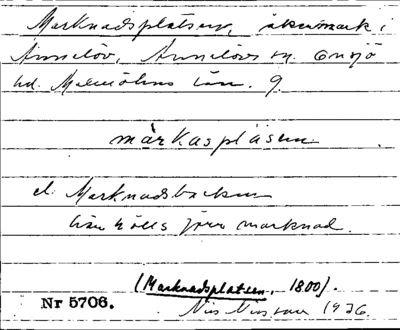 Marknadsplatsen, åkermark i
Annelöv, Annelövs sn. Onsjö
hd. Malmöhus län. 9.
mārkaspläsen
el. Marknadsbacken
här hölls förr marknad.
(Marknadsplatsen, 1800).
Nr 5706.
Nils Nilsson 1936.